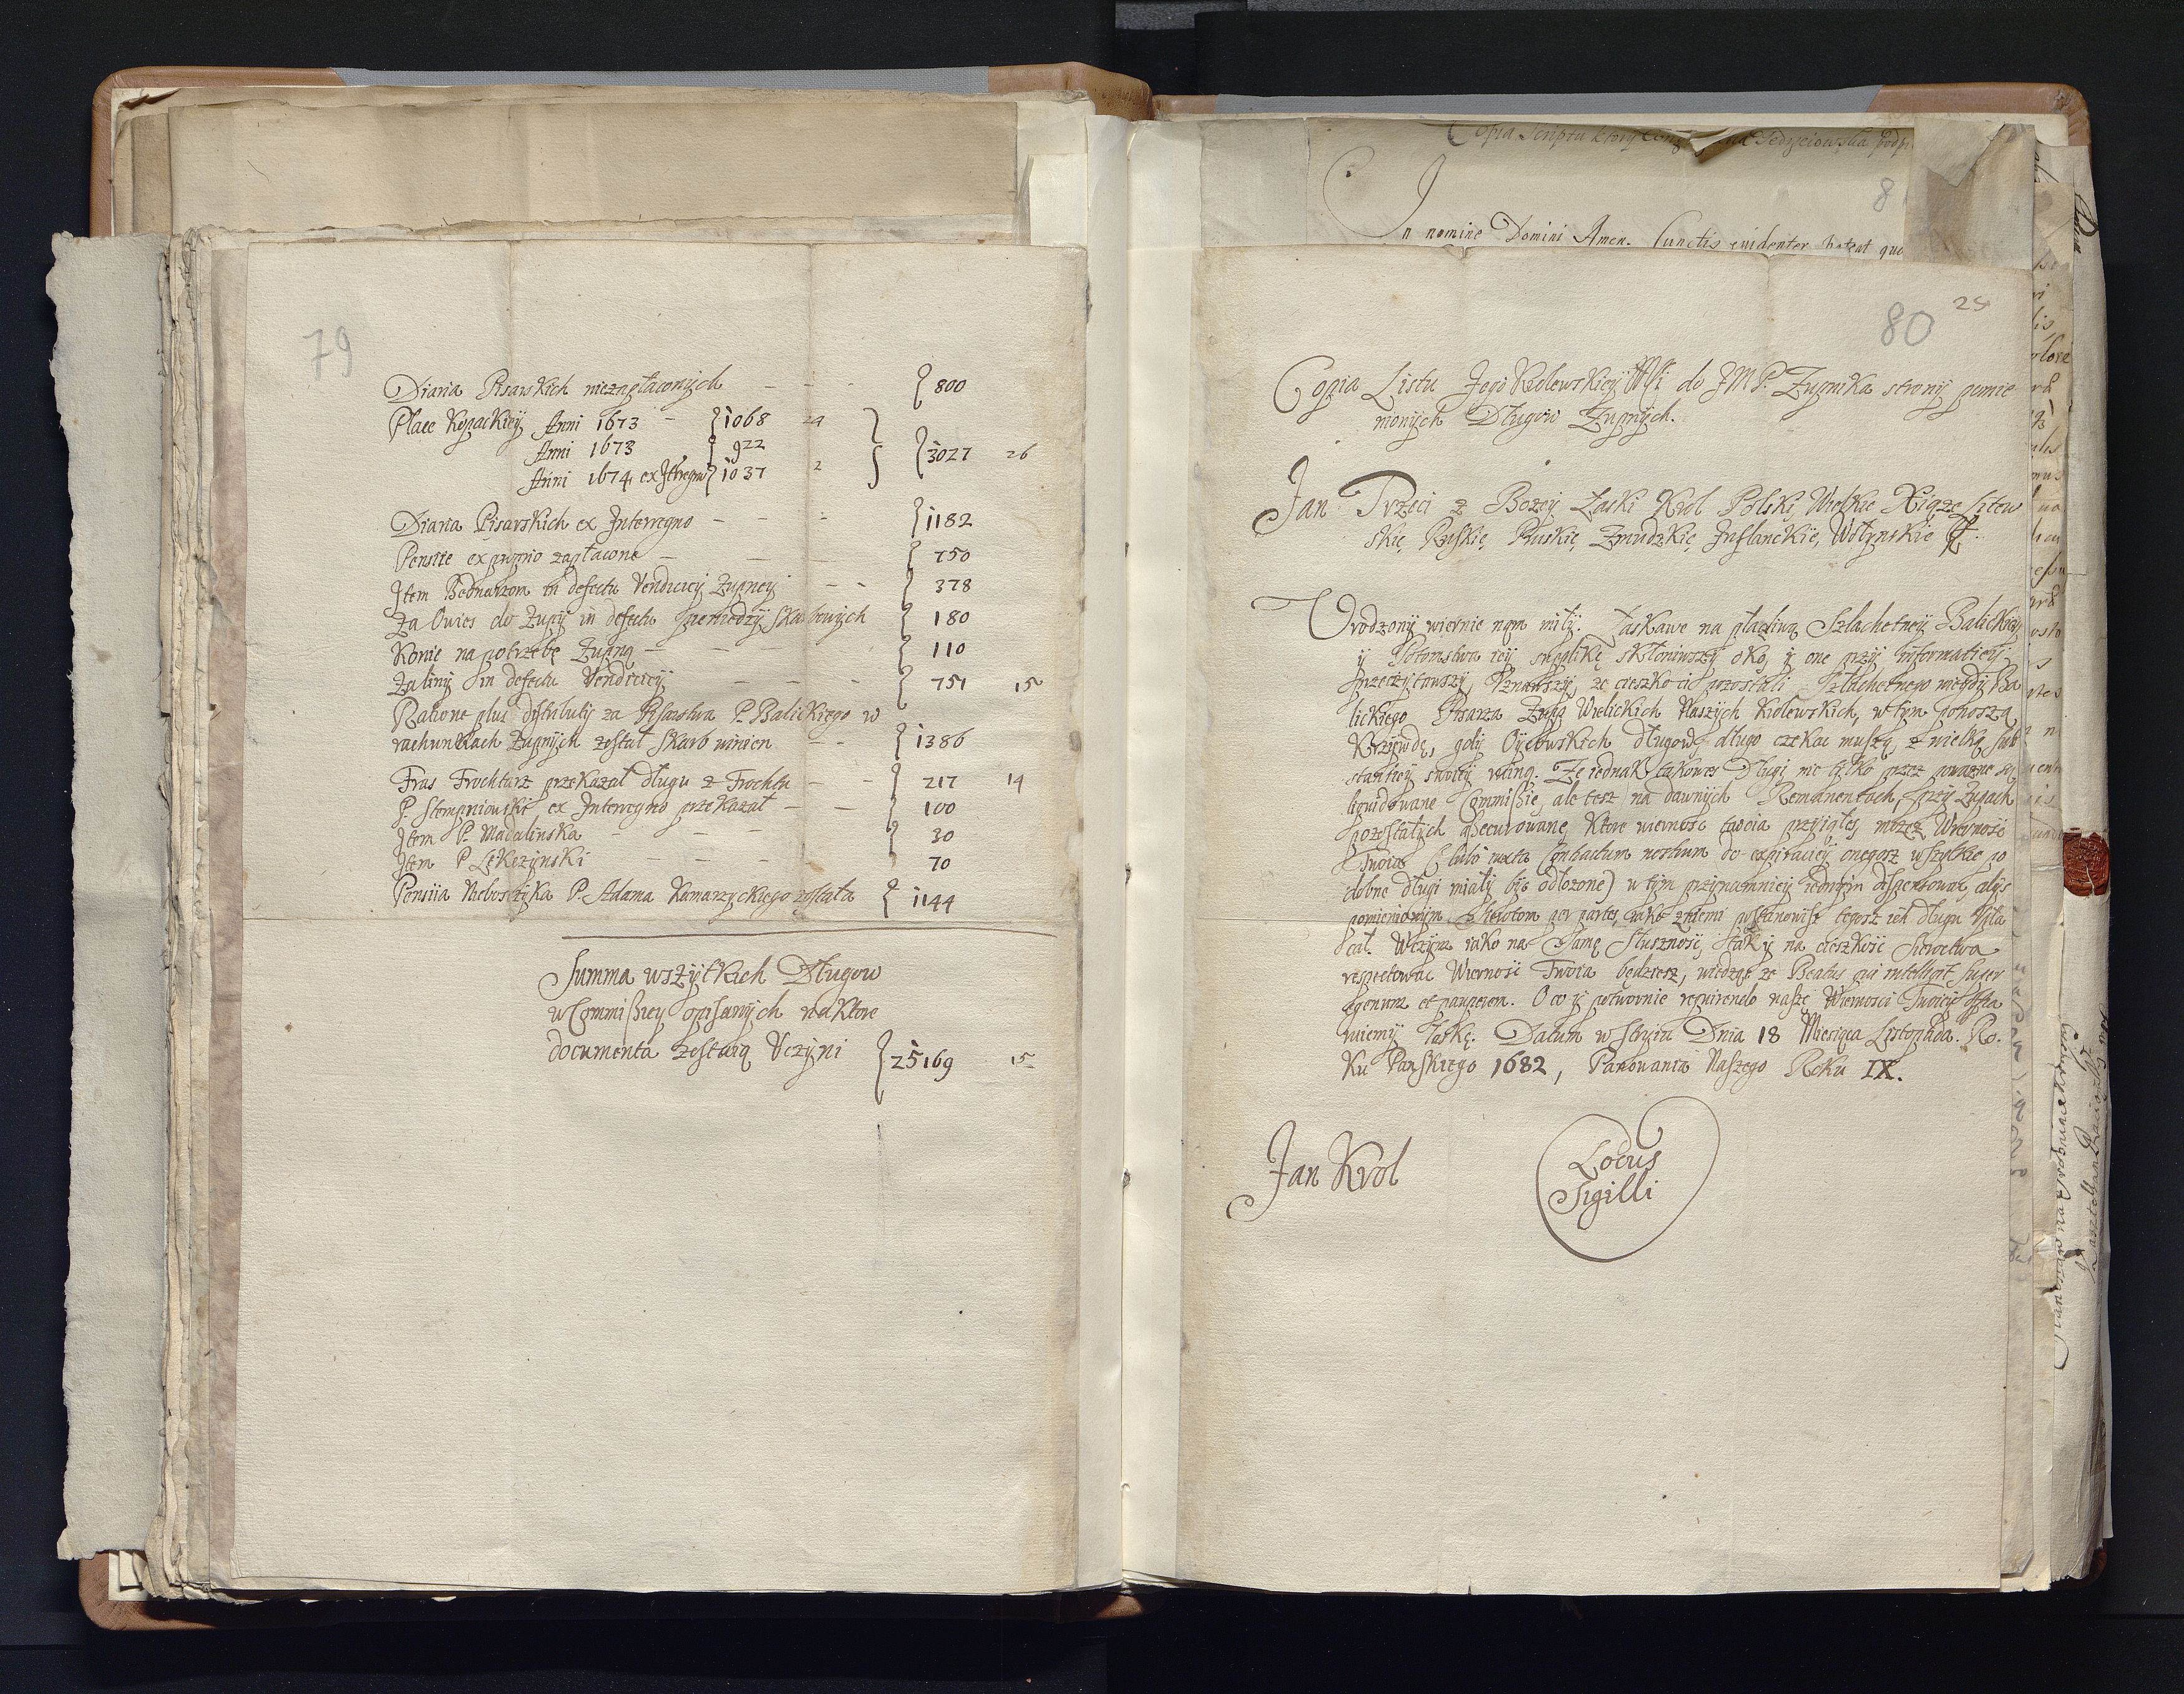 79
Diaria Pisarskich niezapłaconych — — — 800
Płace Kopackiey Anni 1673 — 1068 24
Anni 1673 922
Anni 1674 ex Interegno 1037 2
3027 26
Diaria Pisarskich ex Interregno — — — 1182
Pensiie ex proprio zapłacone — — 750
Item Bednarzom in defectu Vendiciey Zupney — — 378
Za Owies do Zupy in defectu pieniedzy Skarbowych 180
Konie na potrzebę Zupną — — — 110
Za liny in defectu Vendiciey — — — 751 15
Ratione plus distituty za Pisarstwa P. Balickiego w
rachunkach Zupnych został Skarb winien — — 1386
Fras Frochtarz przekazał długu z Frochtu — — 217 14
P. Stempniowski ex Interregno przekazał — — 100
Item P. Madalinska — — — 30
Item P. — — — 70
Pensiia Nieboszczyka P. Adama Komarzyckiego została 1144
Summa wszytkich Długow
w Commissiey opisanych na ktore
documenta zostaią Vczyni 25169 15
Copia Scriptu ktory
81
In nomine Domini Amen. Cunctis euidenter pateat quo
80 25
Copia Listu Jego Krolewskiey Msci do JMP. Zupnika strony pomie
nionych Długow Zupnych.
Jan Trzeci z Bozey Łaski Krol Polski, Wielkie Xiąze Litew
skie, Ruskie, Pruskie, Zmudzkie, Inflanckie, Wołynskie
Vrodzony wiernie nam miły. Łaskawe na płaczliwą Szlachetney Balickiey
y Potomstwa iey supplikę skłoniwszy oko, y one przy informatiey
przeczytawszy, Vznawszy, ze cieszko ci pozostali Szlachetnego niegdy Ba
lickiego Pisarza Zupp Wielickich Naszych Krolewskich, w tym ponoszą
Krzywdę, gdy Oycowskich długow długo czekac muszą, z wielką sub
stantiey swoiey ruiną. Ze iednak takowes Długi nie tylko przez powazne są
liquidowane Commissie, ale tesz na dawnych Remanentach, przy Zupach
pozostałych assecurowane, ktore wiernosc twoia przyiąłes, mozesz Wiernosc
Twoia (lubo iuxta Contractum nostrum do expiraciey onegosz wszytkie po
dobne długi miały byc odłozone) w tym przynamniey iednym dispensowac, abys
pomienionym Sierotom per partes, iako z niemi postanowisz tegosz ich długu Vpła
cał. Wczym iako na Samę Słusznosc, tak y na cieszkosc Sieroctwa
respectowac Wiernosc Twoia będziesz, wiedząc ze Beatus qui intelligit super
egenum et pauperem. O co y powtornie requirendo naszę Wiernosci Twoiey ofia
ruiemy łaskę. Datum w Stryiu Dnia 18 Miesiąca Listopada. Ro.
Ku Panskiego 1682, Panowania Naszego Roku IX.
Jan Krol
Locus
Sigilli